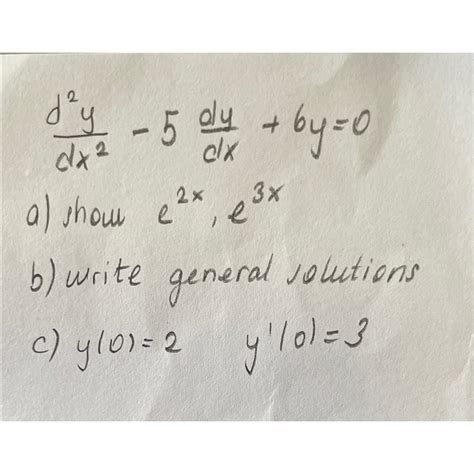 d²y/dx² - 5 dy/dx + 6y = 0
a) show e^2x, e^3x
b) write general solutions
c) y(0) = 2 y'(0) = 3